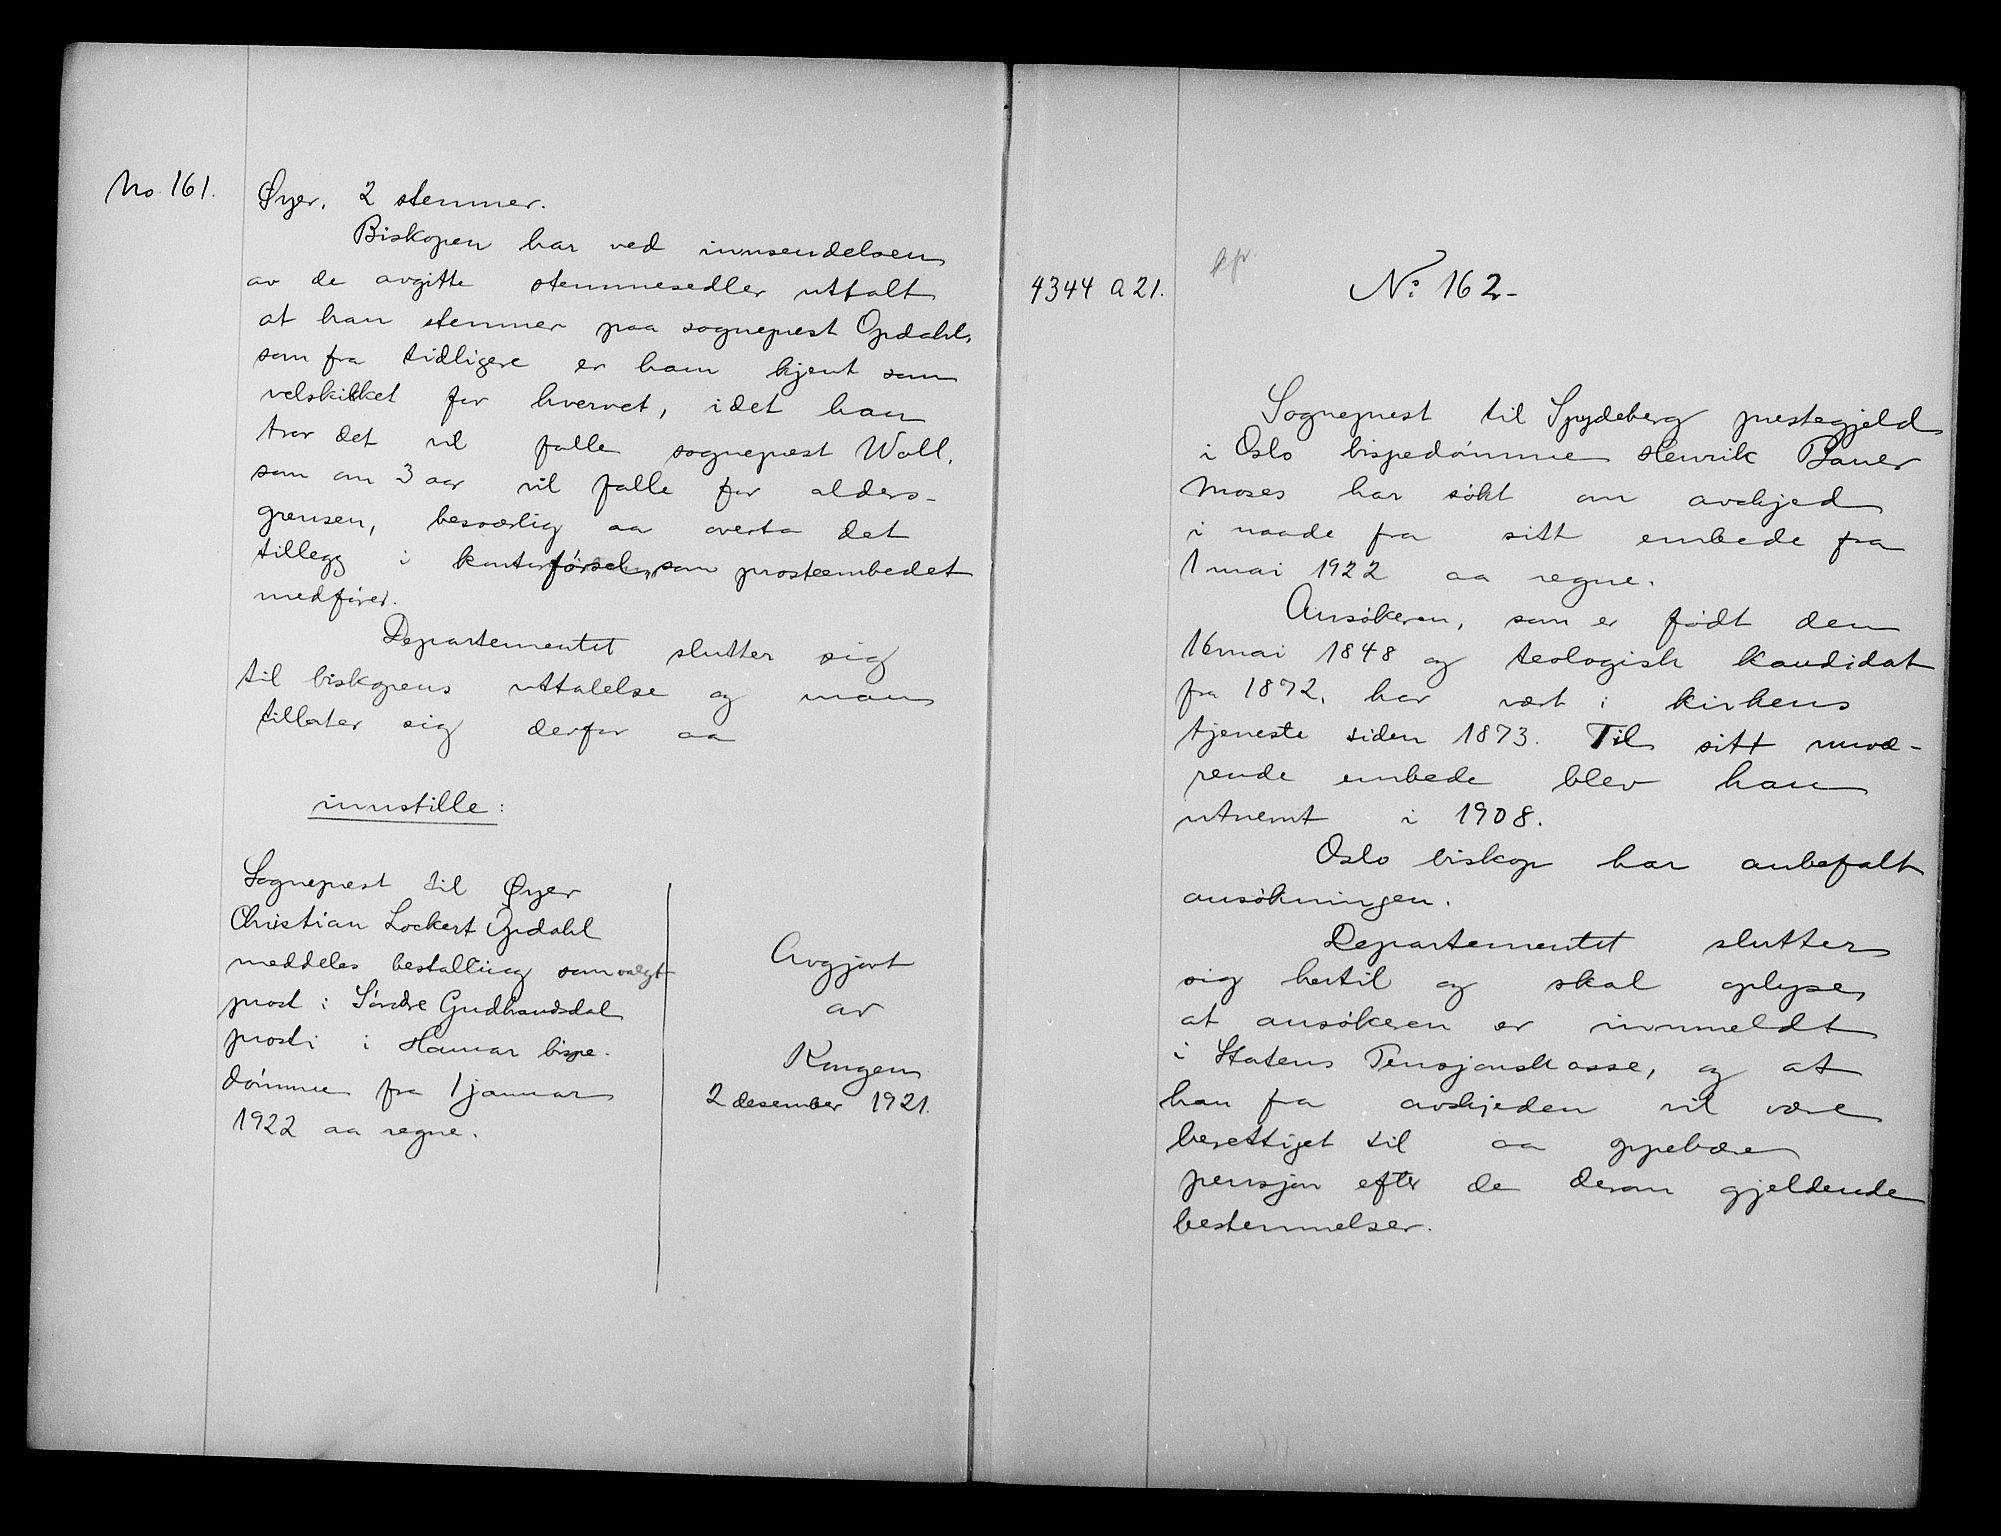 No. 161.
Øyer. 2 stemmer.
Biskopen har ved innsendelsen
av de avgitte stemmesedler uttalt
at han stemmer paa sogneprest Opdahl,
som fra tidligere er ham kjent som
velskikket for hvervet, idet han
tror det vil falle sogneprest Woll,
som om 3 aar vil falle for alders-
grensen, besværlig aa overta det
tillegg i kontorførselen, som prosteembedet
medfører.
Departementet slutter sig
til biskopens uttalelse og man
tillater sig derfor aa
innstille:
Sogneprest til Øyer
Christian Lockert Opdahl
meddeles bestalling som valgt
prost i Søndre Gudbrandsdal
prosti i Hamar bispe-
dømme fra 1 januar
1922 aa regne.
Avgjort
av
Kongen
2 desember 1921.
4344 A 21.
No 162-
Sogneprest til Spydeberg prestegjeld
i Oslo bispedømme Henrik Baner
Moses har søkt om avskjed
i naade fra sitt embede fra
1 mai 1922 aa regne.
Ansøkeren, som er født den
16 mai 1848 og teologisk kandidat
fra 1872, har vært i kirkens
tjeneste siden 1873. Til sitt nuvæ-
rende embede blev han
utnemt i 1908.
Oslo biskop har anbefalt
ansøkningen.
Departementet slutter
sig hertil og skal oplyse,
at ansøkeren er innmeldt
i Statens Pensjonskasse, og at
han fra avskjeden vil være
berettiget til aa oppebære
pensjon efter de derom gjeldende
bestemmelser.